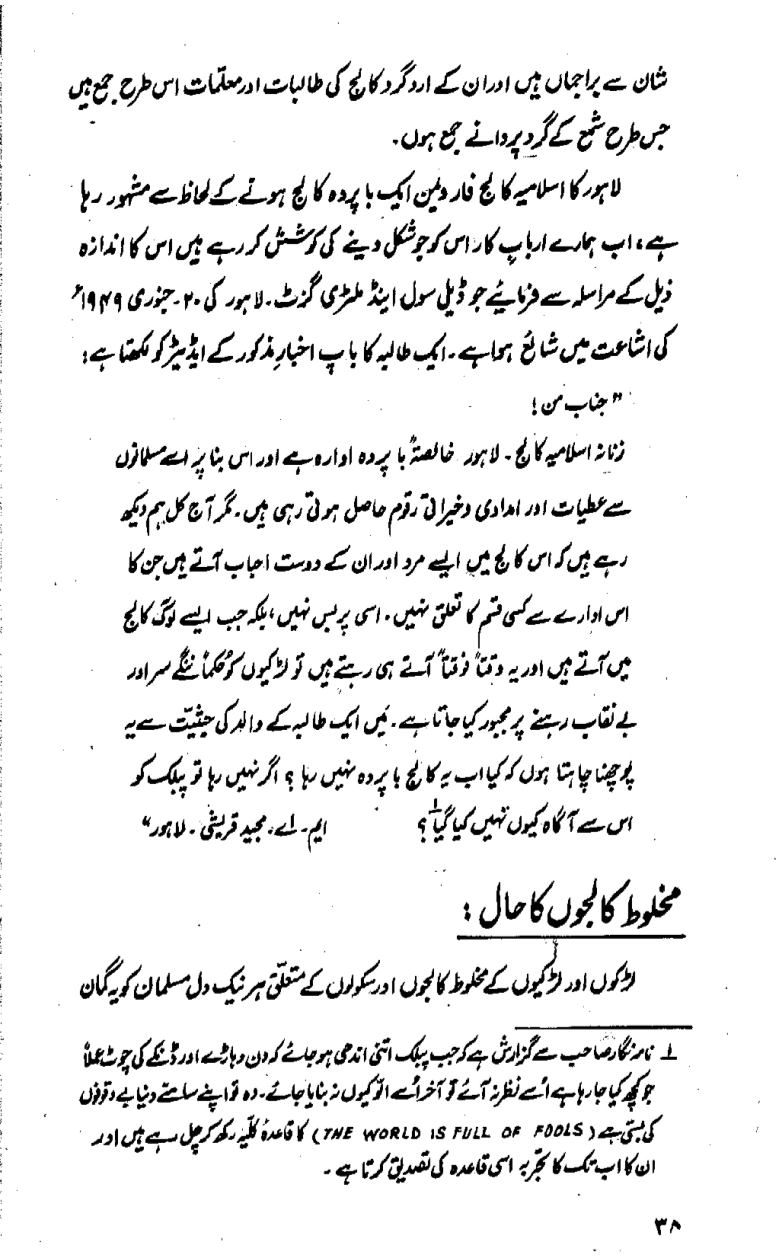 شان سے براجماں ہیں اور ان کے اردگرد کالج کی طالبات اور معلمات اس طرح جمع ہیں
جس طرح شمع کے گرد پروانے جمع ہوں۔
لاہور کا اسلامیہ کالج فار ویمن ایک باپردہ کالج ہونے کے لحاظ سے مشہور رہا
ہے، اب ہمارے اربابِ کار اس کو جو شکل دینے کی کوشش کر رہے ہیں اس کا اندازہ
ذیل کے مراسلہ سے فرمائیے جو ڈیلی سول اینڈ ملٹری گزٹ۔ لاہور کی ۲۰۔ جنوری ۱۹۴۹ء
کی اشاعت میں شائع ہوا ہے۔ ایک طالبہ کا باپ اخبارِ مذکور کے ایڈیٹر کو لکھتا ہے:
"جناب من!
زنانہ اسلامیہ کالج۔ لاہور خالصۃً باپردہ ادارہ ہے اور اس بنا پر اسے مسلمانوں
سے عطیات اور امدادی و خیراتی رقوم حاصل ہوتی رہی ہیں۔ مگر آج کل ہم دیکھ
رہے ہیں کہ اس کالج میں ایسے مرد اور ان کے دوست احباب آتے ہیں جن کا
اس ادارے سے کسی قسم کا تعلق نہیں۔ اسی پر بس نہیں، بلکہ جب ایسے لوگ کالج
میں آتے ہیں اور یہ وقتاً فوقتاً آتے ہی رہتے ہیں تو لڑکیوں کو حکماً ننگے سر اور
بے نقاب رہنے پر مجبور کیا جاتا ہے۔ میں ایک طالبہ کے والد کی حیثیت سے یہ
پوچھنا چاہتا ہوں کہ کیا اب یہ کالج باپردہ نہیں رہا ؟ اگر نہیں رہا تو پبلک کو
اس سے آگاہ کیوں نہیں کیا گیا؟ ۱؎ ایم۔ اے۔ مجید قریشی۔ لاہور"
مخلوط کالجوں کا حال :
لڑکوں اور لڑکیوں کے مخلوط کالجوں اور سکولوں کے متعلق ہر نیک دل مسلمان کو یہ گمان
۱؎ نامہ نگار صاحب سے گزارش ہے کہ جب پبلک اتنی اندھی ہو جائے کہ دن دہاڑے اور ڈنکے کی چوٹ عملاً
جو کچھ کیا جا رہا ہے اُسے نظر نہ آئے تو آخر اُسے الو کیوں نہ بنایا جائے۔ وہ تو اپنے سامنے دنیا بے وقوفوں
کی بستی ہے (THE WORLD IS FULL OF FOOLS) کا قاعدہ کلیہ رکھ کر چل رہے ہیں اور
ان کا اب تک کا تجربہ اسی قاعدہ کی تصدیق کرتا ہے۔
۳۸